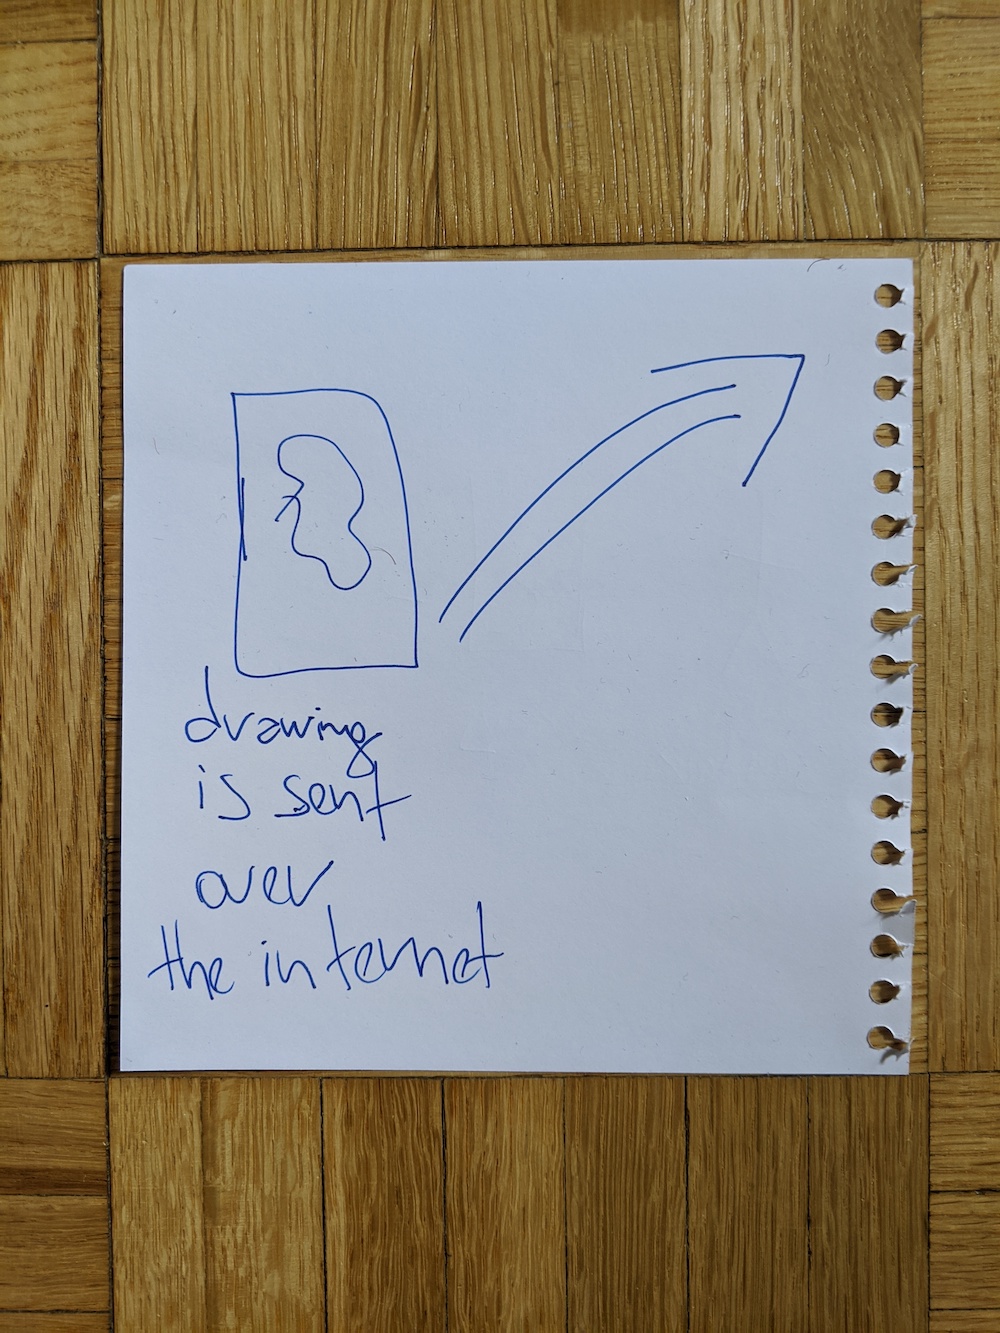 drawing
is sent
over
the internet